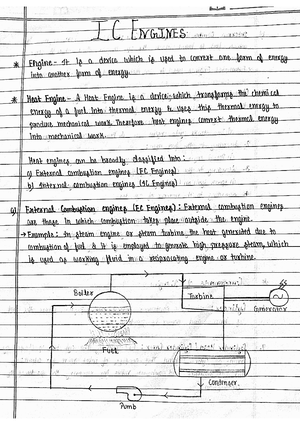 I C ENGINES
* Engine - It is a device which is used to convert one form of energy
into another form of energy.
* Heat Engine - A Heat Engine is a device which transforms the chemical
energy of a fuel into thermal energy & uses this thermal energy to
produce mechanical work. Therefore heat engines convert thermal energy
into mechanical work.
Heat engines can be broadly classified into:
a) External combustion engines (EC Engines)
b) Internal combustion engines (IC Engines)
a) External Combustion engines (EC Engines): External combustion engines
are those in which combustion takes place outside the engine.
→ Example: In steam engine or steam turbine, the heat generated due to
combustion of fuel & it is employed to generate high pressure steam, which
is used as working fluid in a reciprocating engine or turbine.
Boiler
Turbine
Generator
Fuel
Condenser
Pump